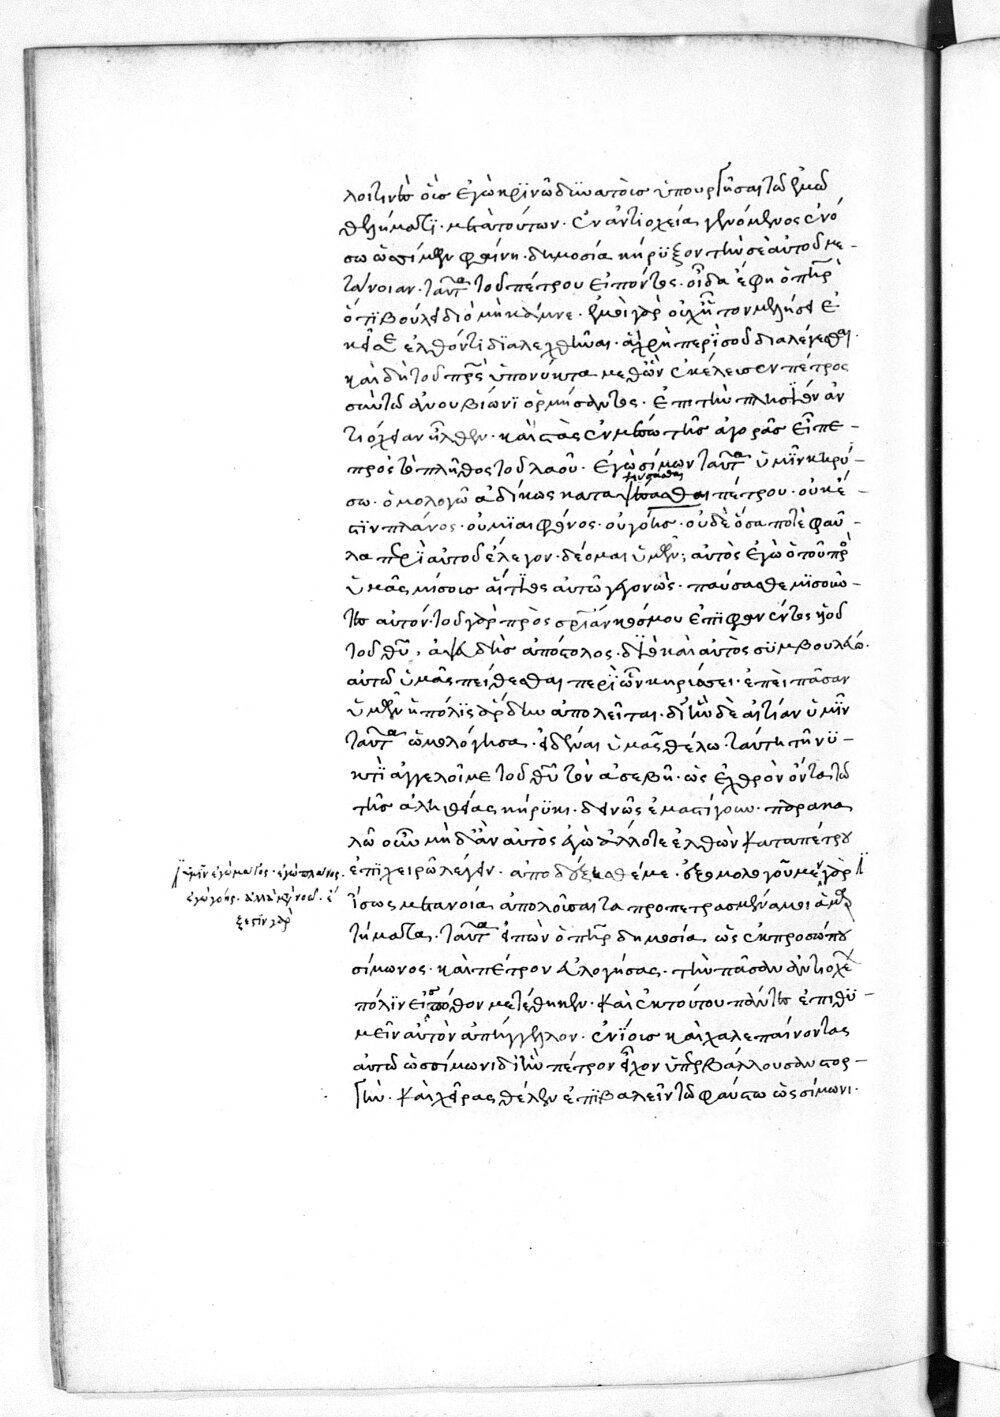 λοιτινὲς οἷς ἐγὼ κρίνω δίκη αὐτοῖς ὑπουργῆσαι τῶ ἐμῶ
θελήματι· μετὰ τούτων· ἐν ἀντιοχεία γενόμενος ἐν ὁ-
σω ὡς σίμων φαίνη· δημοσία κήρυξον τὴν σὲ αὐτοῦ με-
τάνοιαν. ταῦτα τοῦ πέτρου εἰπόντος· οἶδα ἔφη ὁ πηρ
ὅτι βούλει διὸ μὴ κάμνε· ἐμοὶ γὰρ οὐχ ἧττον μελήσει ἐ-
κεῖσε ἐλθόντι διαλεχθῆναι· ἃ χρὴ περὶ σοῦ διαλέγεσθαι·
καὶ δὴ τοῦ πρς ὑπονύκτα μεθ' ὧν ἐκέλευσεν πέτρος
σὺν τῶ ἀνουβίωνι ὁρμήσαντος· ἐπι τὴν πλησίον ἀν
τιόχειαν ἦλθεν· καὶ στὰς ἐν μέσω τῆς ἀγορᾶς εἶπε-
πρὸς τὸ πλῆθος τοῦ λαοῦ· ἐγὼ σίμων ταῦτα ὑμῖν κηρύ-
σω· ὁμολογῶ ἀδίκως καταψεύσασθαι πέτρου· οὐκ ἔ-
στιν πλάνος· οὐ μϊαιφόνος· οὐ γόης· οὐδὲ ὅσα ποτὲ φαῦ-
λα περὶ αὐτοῦ ἔλεγον. δέομαι ὑμῶν, αὐτὸς ἐγὼ ὁ τοῦ πρὸς
ὑμᾶς μίσοις αἴτιος αὐτῶ γεγονὼς· παύσασθε μϊσοῦν-
τες αὐτόν· τοῦ γὰρ πρὸς σρίαν κόσμου ἐπϊφανέντος υἱοῦ
τοῦ θυ, ἀψευδὴς ἀπόστολος· διὸ καὶ αὐτὸς συμβουλεύω.
αὐτῶ ὑμᾶς πείθεσθαι περὶ ὧν κηρύσει· ἐπεὶ πᾶσαν
ὑμῶν ἡ πόλϊς ἄρδην ἀπολεῖται. δι' ἣν δὲ αἰτίαν ὑμῖν
ταῦτα ὡμολόγησα· εἰδέναι ὑμᾶς θέλω· ταύτη τῆ νυ-
κτὶ ἄγγελοί με τοῦ θυ τὸν ἀσεβῆ· ὡς ἐχθρὸν ὄντα τῶ
τῆς ἀληθείας κήρϋκι· δεινῶς ἐμαστίγουν· παρακα
λῶ οὖν μὴ δ' ἂν αὐτὸς ἐγὼ ἄλλοτε ἐλθὼν κατὰ πέτρου
ἐπιχειρῶ λέγειν· ἀποδέξασθέ με· ἐξομολογοῦμαι γὰρ
ὑμῖν ἐγὼ μάγος· ἐγὼ πλάνος·
ἐγὼ γόης· ἀλλὰ μετανοῶ· ἔ-
ξεστιν γὰρ
ἴσως μετανοία ἀπολοῦσαι τα προπεπραγμένα μοι ἁμαρ
τήματα. ταῦτα εἰπὼν ὁ πηρ δημοσία ὡς ἐκ προσώπου
σίμωνος· καὶ πέτρον εὐλογήσας· τὴν πᾶσαν ἀντιοχέων
πόλϊν εἰς πόθον μετέθηκεν· καὶ ἐκ τούτου πάντες ἐπιθϋ-
μεῖν αὐτὸν ἀπήγγελλον· ἐνίοις καὶ χαλεπαίνοντας
αὐτῶ ὡς σίμωνι δι' ἣν πέτρον εἶχον ὑπερβάλλουσαν στορ-
γὴν· καὶ χεῖρας θέλειν ἐπιβαλεῖν τῶ φαύστω ὡς σίμωνι·